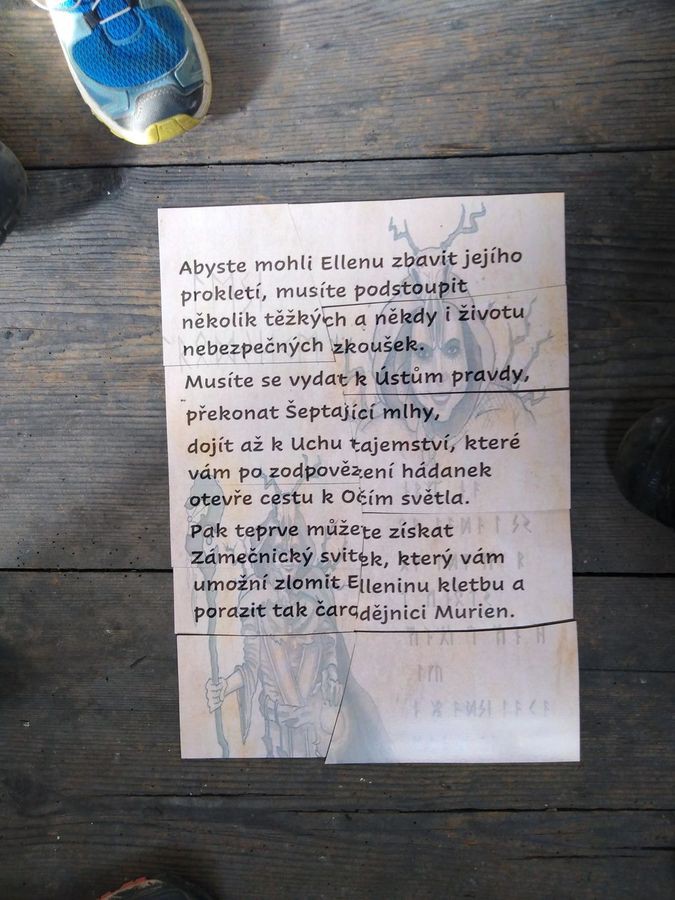 Abyste mohli Ellenu zbavit jejího
prokletí, musíte podstoupit
několik těžkých a někdy i životu
nebezpečných zkoušek.
Musíte se vydat k Ústům pravdy,
překonat Šeptající mlhy,
dojít až k Uchu tajemství, které
vám po zodpovězení hádanek
otevře cestu k Očím světla.
Pak teprve můžete získat
Zámečnický svitek, který vám
umožní zlomit Elleninu kletbu a
porazit tak čarodějnici Murien.